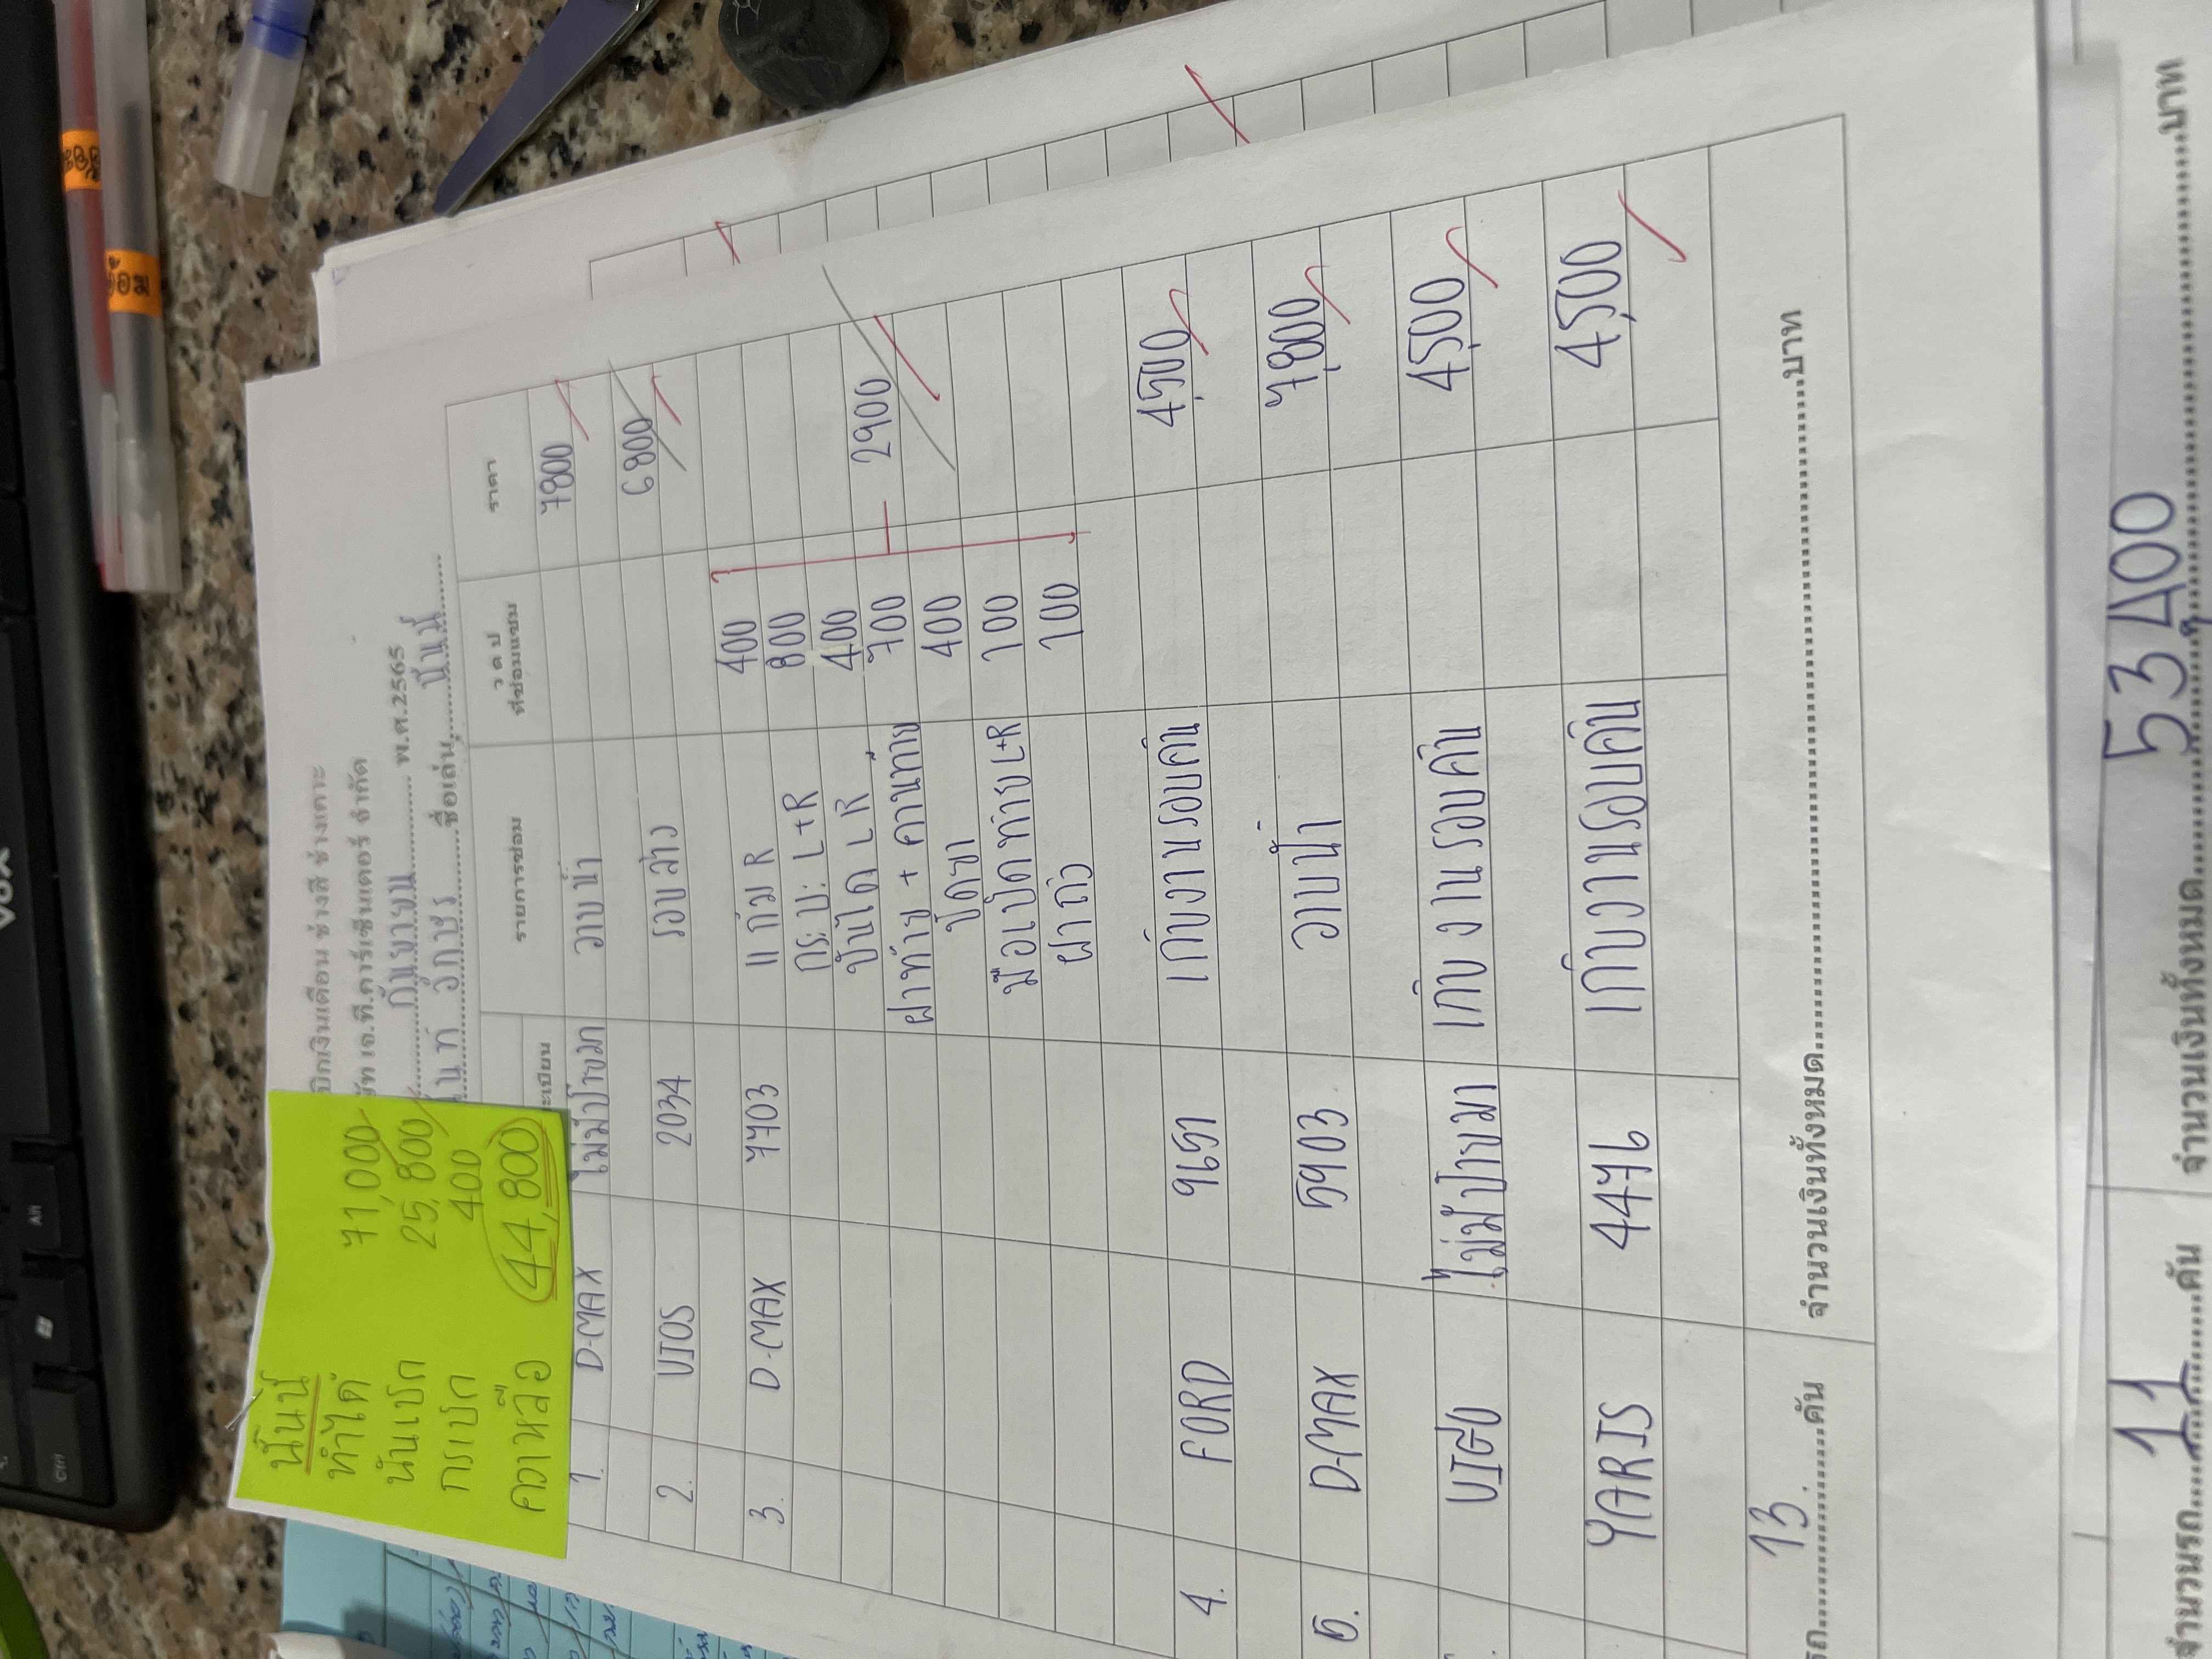 นันน์
ทำได้ 71,000
นันเบิก 25,800
กรเบิก 400
คงเหลือ 44,800
บิกเงินเดือน ช่างสี ช่างเคาะ
ษัท เจ.ที.คาร์เซ็นเตอร์ จำกัด
กันยายน พ.ศ.2565
ชื่อเล่น นันน์
ะเบียน รายการซ่อม ว ด ป ที่ซ่อมแซม ราคา
1. D-MAX ไม่มีป้าย วาบน้ำ 7800
2. VIOS 2034 รอบล้าง 6800
3. D-MAX 7703 แก้ม R 400
กระบะ L+R 800
บันได L R 400
ฝาท้าย + คานท้าย 700 2900
400
มือเปิดท้าย L+R 100
ฝาถัง 100
4. FORD 9651 เก็บงานรอบคัน 4,500
5. D-MAX 5903 วาบน้ำ 7,800
ไม่มีป้าย เก็บงานรอบคัน 4,500
YARIS 4476 เก็บงานรอบคัน 4,500
รถ 13 คัน จำนวนเงินทั้งหมด บาท
จำนวนรถ 11 คัน จำนวนเงินทั้งหมด 53,400 บาท
Alt
Ctrl